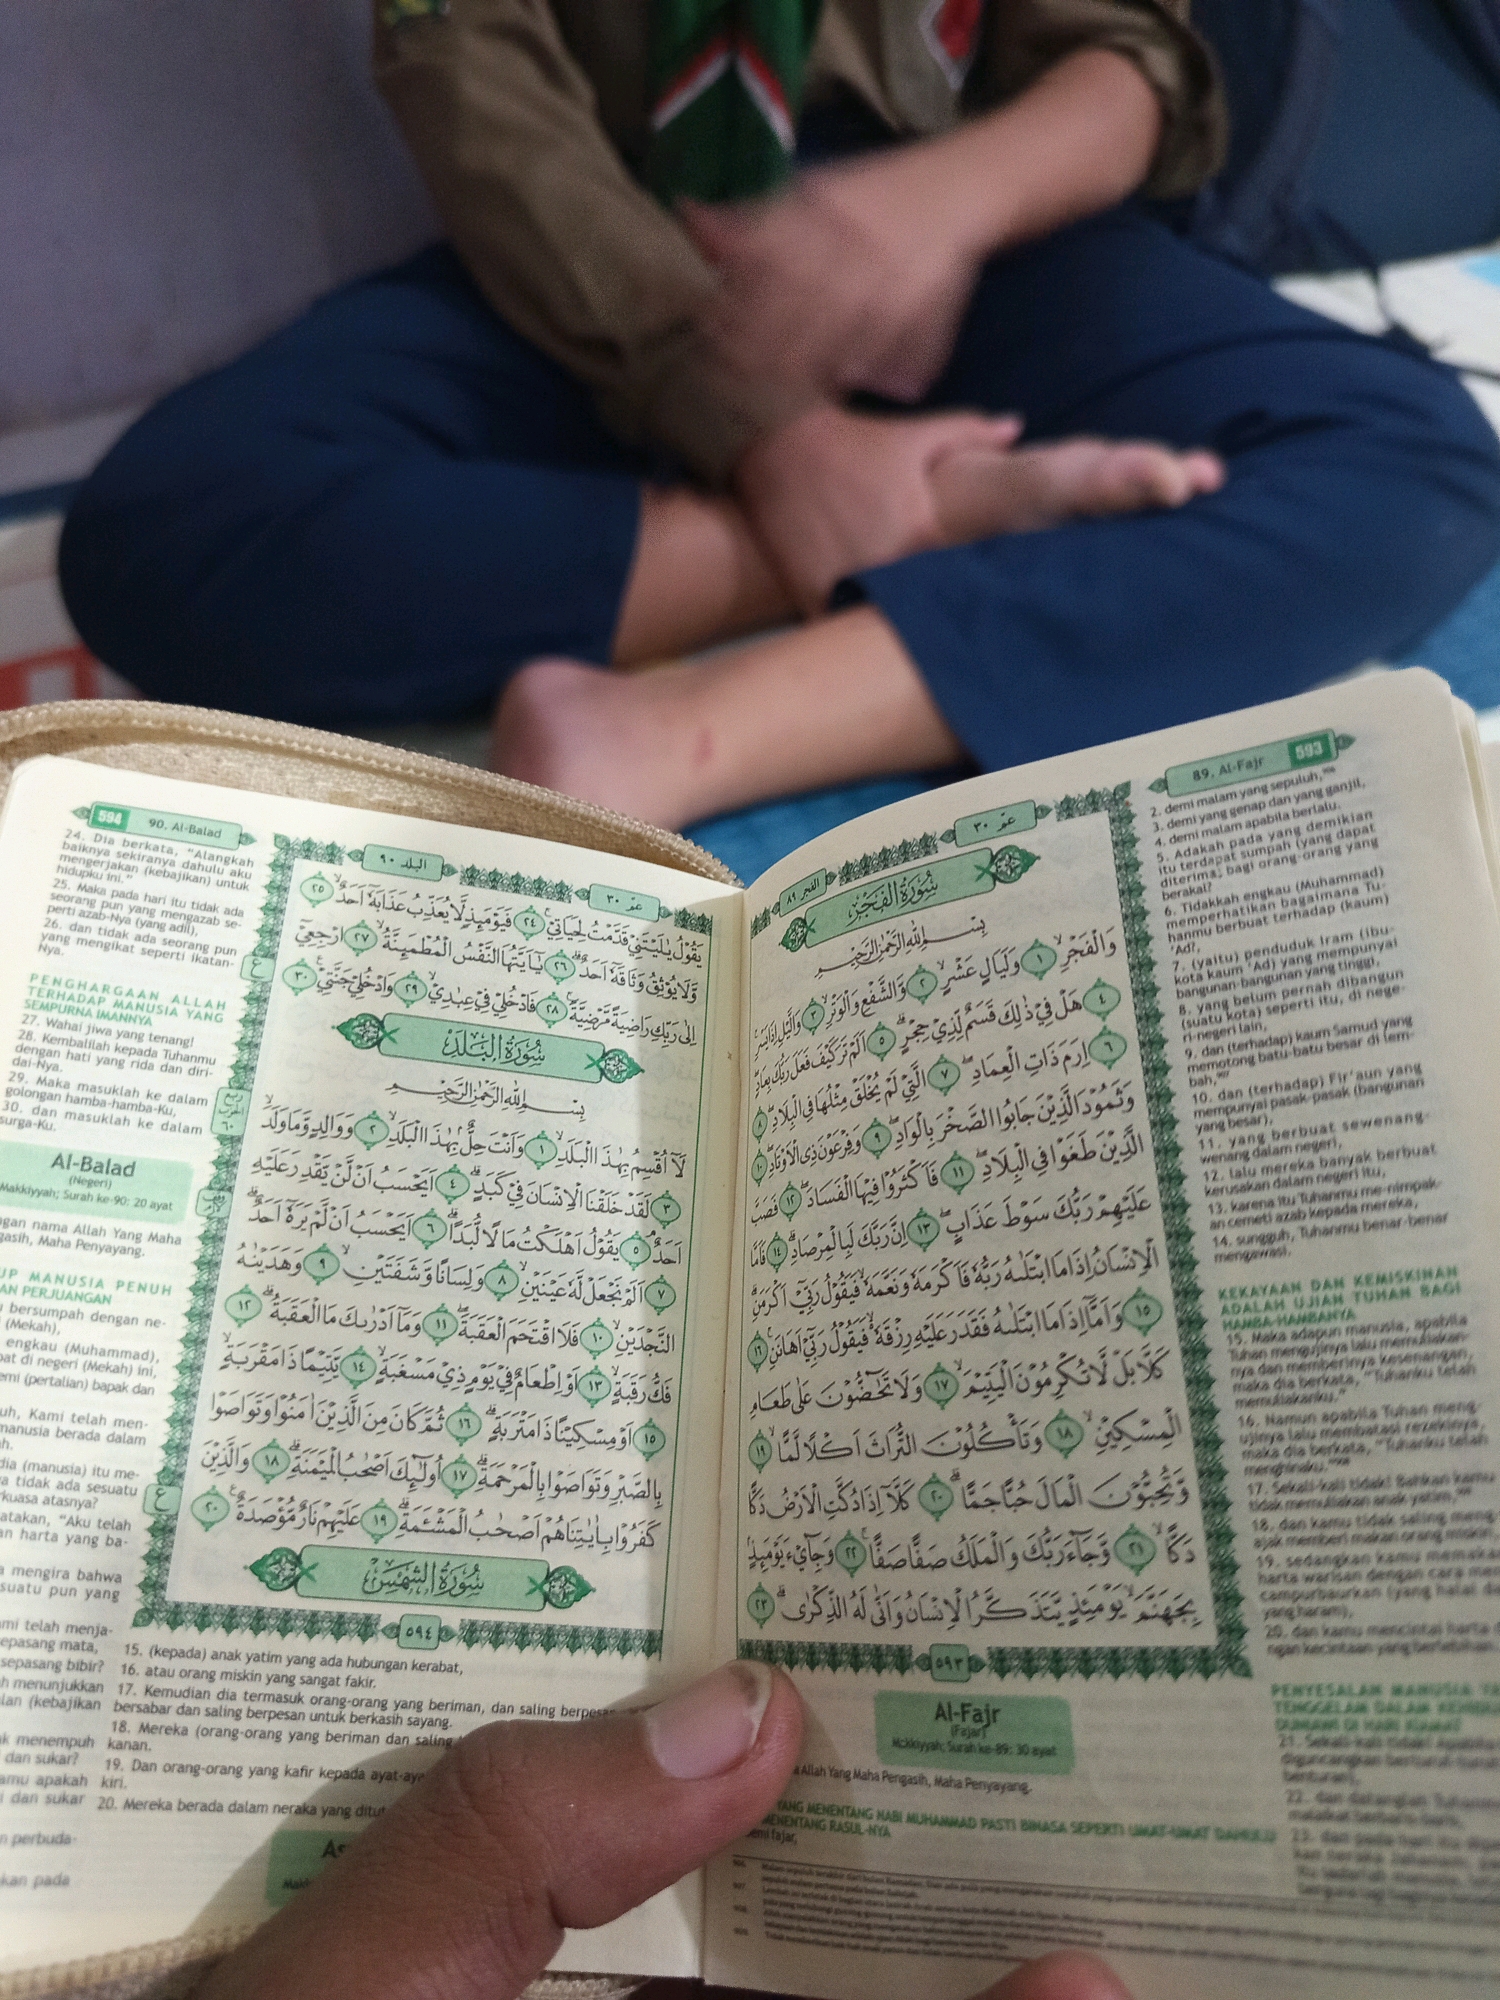 593
89. Al-Fajr
عمّ ٣٠
الفجر ٨٩
سُورَةُ الْفَجْرِ
بِسْمِ اللهِ الرَّحْمٰنِ الرَّحِيْمِ
وَالْفَجْرِۙ ١ وَلَيَالٍ عَشْرٍۙ ٢ وَّالشَّفْعِ وَالْوَتْرِۙ ٣ وَالَّيْلِ اِذَا يَسْرِۚ
٤ هَلْ فِيْ ذٰلِكَ قَسَمٌ لِّذِيْ حِجْرٍۗ ٥ اَلَمْ تَرَ كَيْفَ فَعَلَ رَبُّكَ بِعَادٍۖ
٦ اِرَمَ ذَاتِ الْعِمَادِۖ ٧ الَّتِيْ لَمْ يُخْلَقْ مِثْلُهَا فِى الْبِلَادِۖ ٨
وَثَمُوْدَ الَّذِيْنَ جَابُوا الصَّخْرَ بِالْوَادِۖ ٩ وَفِرْعَوْنَ ذِى الْاَوْتَادِۖ ١٠
الَّذِيْنَ طَغَوْا فِى الْبِلَادِۖ ١١ فَاَكْثَرُوْا فِيْهَا الْفَسَادَۖ ١٢ فَصَبَّ
عَلَيْهِمْ رَبُّكَ سَوْطَ عَذَابٍۖ ١٣ اِنَّ رَبَّكَ لَبِالْمِرْصَادِۗ ١٤ فَاَمَّا
الْاِنْسَانُ اِذَا مَا ابْتَلٰىهُ رَبُّهٗ فَاَكْرَمَهٗ وَنَعَّمَهٗۙ فَيَقُوْلُ رَبِّيْٓ اَكْرَمَنِۗ
١٥ وَاَمَّآ اِذَا مَا ابْتَلٰىهُ فَقَدَرَ عَلَيْهِ رِزْقَهٗۙ فَيَقُوْلُ رَبِّيْٓ اَهَانَنِۚ ١٦
كَلَّا بَلْ لَّا تُكْرِمُوْنَ الْيَتِيْمَۙ ١٧ وَلَا تَحٰۤضُّوْنَ عَلٰى طَعَامِ
الْمِسْكِيْنِۙ ١٨ وَتَأْكُلُوْنَ التُّرَاثَ اَكْلًا لَّمًّاۙ ١٩
وَّتُحِبُّوْنَ الْمَالَ حُبًّا جَمًّاۗ ٢٠ كَلَّآ اِذَا دُكَّتِ الْاَرْضُ دَكًّا
دَكًّاۙ ٢١ وَّجَآءَ رَبُّكَ وَالْمَلَكُ صَفًّا صَفًّاۚ ٢٢ وَجِايْۤءَ يَوْمَىِٕذٍۢ
بِجَهَنَّمَۙ يَوْمَىِٕذٍ يَّتَذَكَّرُ الْاِنْسَانُ وَاَنّٰى لَهُ الذِّكْرٰىۗ ٢٣
٥٩٣
2. demi malam yang sepuluh,
3. demi yang genap dan yang ganjil,
4. demi malam apabila berlalu.
5. Adakah pada yang demikian
itu terdapat sumpah (yang dapat
diterima) bagi orang-orang yang
berakal?
6. Tidakkah engkau (Muhammad)
memperhatikan bagaimana Tu-
hanmu berbuat terhadap (kaum)
'Ad?,
7. (yaitu) penduduk Iram (ibu-
kota kaum 'Ad) yang mempunyai
bangunan-bangunan yang tinggi,
8. yang belum pernah dibangun
(suatu kota) seperti itu, di nege-
ri-negeri lain,
9. dan (terhadap) kaum Samud yang
memotong batu-batu besar di lem-
bah,
10. dan (terhadap) Fir'aun yang
mempunyai pasak-pasak (bangunan
yang besar),
11. yang berbuat sewenang-
wenang dalam negeri,
12. lalu mereka banyak berbuat
kerusakan dalam negeri itu,
13. karena itu Tuhanmu me-nimpak-
an cemeti azab kepada mereka,
14. sungguh, Tuhanmu benar-benar
mengawasi.
KEKAYAAN DAN KEMISKINAN
ADALAH UJIAN TUHAN BAGI
HAMBA-HAMBANYA
15. Maka adapun manusia, apabila
Tuhan mengujinya lalu memuliakan-
nya dan memberinya kesenangan,
maka dia berkata, "Tuhanku telah
memuliakanku."
16. Namun apabila Tuhan meng-
ujinya lalu membatasi rezekinya,
maka dia berkata, "Tuhanku telah
menghinaku."
17. Sekali-kali tidak! Bahkan kamu
tidak memuliakan anak yatim,
18. dan kamu tidak saling meng-
ajak memberi makan orang miskin,
19. sedangkan kamu memakan
harta warisan dengan cara men-
campurbaurkan (yang halal dan
yang haram),
20. dan kamu mencintai harta
ngan kecintaan yang berlebihan.
Al-Fajr
(Fajar)
Makkiyyah; Surah ke-89: 30 ayat
Allah Yang Maha Pengasih, Maha Penyayang.
YANG MENENTANG NABI MUHAMMAD PASTI BINASA SEPERTI UMAT-UMAT DAHULU
MENENTANG RASUL-NYA
fajar,
594
90. Al-Balad
البلد ٩٠
عمّ ٣٠
24. Dia berkata, "Alangkah
baiknya sekiranya dahulu aku
mengerjakan (kebajikan) untuk
hidupku ini."
25. Maka pada hari itu tidak ada
seorang pun yang mengazab se-
perti azab-Nya (yang adil),
26. dan tidak ada seorang pun
yang mengikat seperti ikatan-
Nya.
PENGHARGAAN ALLAH
TERHADAP MANUSIA YANG
SEMPURNA IMANNYA
27. Wahai jiwa yang tenang!
28. Kembalilah kepada Tuhanmu
dengan hati yang rida dan diri-
dai-Nya.
29. Maka masuklah ke dalam
golongan hamba-hamba-Ku,
30. dan masuklah ke dalam
surga-Ku.
Al-Balad
(Negeri)
Makkiyyah; Surah ke-90: 20 ayat
ngan nama Allah Yang Maha
gasih, Maha Penyayang.
UP MANUSIA PENUH
AN PERJUANGAN
bersumpah dengan ne-
(Mekah),
engkau (Muhammad),
pat di negeri (Mekah) ini,
emi (pertalian) bapak dan
uh, Kami telah men-
manusia berada dalam
ah.
dia (manusia) itu me-
a tidak ada sesuatu
rkuasa atasnya?
atakan, "Aku telah
an harta yang ba-
a mengira bahwa
suatu pun yang
ami telah menja-
epasang mata,
sepasang bibir?
h menunjukkan
lan (kebajikan
ak menempuh
dan sukar?
amu apakah
i dan sukar
n perbuda-
kan pada
يَقُوْلُ يٰلَيْتَنِيْ قَدَّمْتُ لِحَيَاتِيْۚ ٢٤ فَيَوْمَىِٕذٍ لَّا يُعَذِّبُ عَذَابَهٗٓ اَحَدٌۙ ٢٥
وَّلَا يُوْثِقُ وَثَاقَهٗٓ اَحَدٌۗ ٢٦ يٰٓاَيَّتُهَا النَّفْسُ الْمُطْمَىِٕنَّةُۙ ٢٧ ارْجِعِيْٓ
اِلٰى رَبِّكِ رَاضِيَةً مَّرْضِيَّةًۚ ٢٨ فَادْخُلِيْ فِيْ عِبٰدِيْۙ ٢٩ وَادْخُلِيْ جَنَّتِيْ ٣٠
سُورَةُ الْبَلَدِ
بِسْمِ اللهِ الرَّحْمٰنِ الرَّحِيْمِ
لَآ اُقْسِمُ بِهٰذَا الْبَلَدِۙ ١ وَاَنْتَ حِلٌّۢ بِهٰذَا الْبَلَدِۙ ٢ وَوَالِدٍ وَّمَا وَلَدَۙ
٣ لَقَدْ خَلَقْنَا الْاِنْسَانَ فِيْ كَبَدٍۗ ٤ اَيَحْسَبُ اَنْ لَّنْ يَّقْدِرَ عَلَيْهِ
اَحَدٌۘ ٥ يَقُوْلُ اَهْلَكْتُ مَالًا لُّبَدًاۗ ٦ اَيَحْسَبُ اَنْ لَّمْ يَرَهٗٓ اَحَدٌۗ
٧ اَلَمْ نَجْعَلْ لَّهٗ عَيْنَيْنِۙ ٨ وَلِسَانًا وَّشَفَتَيْنِۙ ٩ وَهَدَيْنٰهُ
النَّجْدَيْنِۙ ١٠ فَلَا اقْتَحَمَ الْعَقَبَةَۖ ١١ وَمَآ اَدْرٰىكَ مَا الْعَقَبَةُۗ ١٢
فَكُّ رَقَبَةٍۙ ١٣ اَوْ اِطْعَامٌ فِيْ يَوْمٍ ذِيْ مَسْغَبَةٍۙ ١٤ يَّتِيْمًا ذَا مَقْرَبَةٍۙ
١٥ اَوْ مِسْكِيْنًا ذَا مَتْرَبَةٍۗ ١٦ ثُمَّ كَانَ مِنَ الَّذِيْنَ اٰمَنُوْا وَتَوَاصَوْا
بِالصَّبْرِ وَتَوَاصَوْا بِالْمَرْحَمَةِۗ ١٧ اُولٰۤىِٕكَ اَصْحٰبُ الْمَيْمَنَةِۗ ١٨ وَالَّذِيْنَ
كَفَرُوْا بِاٰيٰتِنَا هُمْ اَصْحٰبُ الْمَشْـَٔمَةِۗ ١٩ عَلَيْهِمْ نَارٌ مُّؤْصَدَةٌ ٢٠
سُورَةُ الشَّمْسِ
٥٩٤
15. (kepada) anak yatim yang ada hubungan kerabat,
16. atau orang miskin yang sangat fakir.
17. Kemudian dia termasuk orang-orang yang beriman, dan saling berpesan
bersabar dan saling berpesan untuk berkasih sayang.
18. Mereka (orang-orang yang beriman dan saling
kanan.
19. Dan orang-orang yang kafir kepada ayat-aya
kiri.
20. Mereka berada dalam neraka yang ditut
As